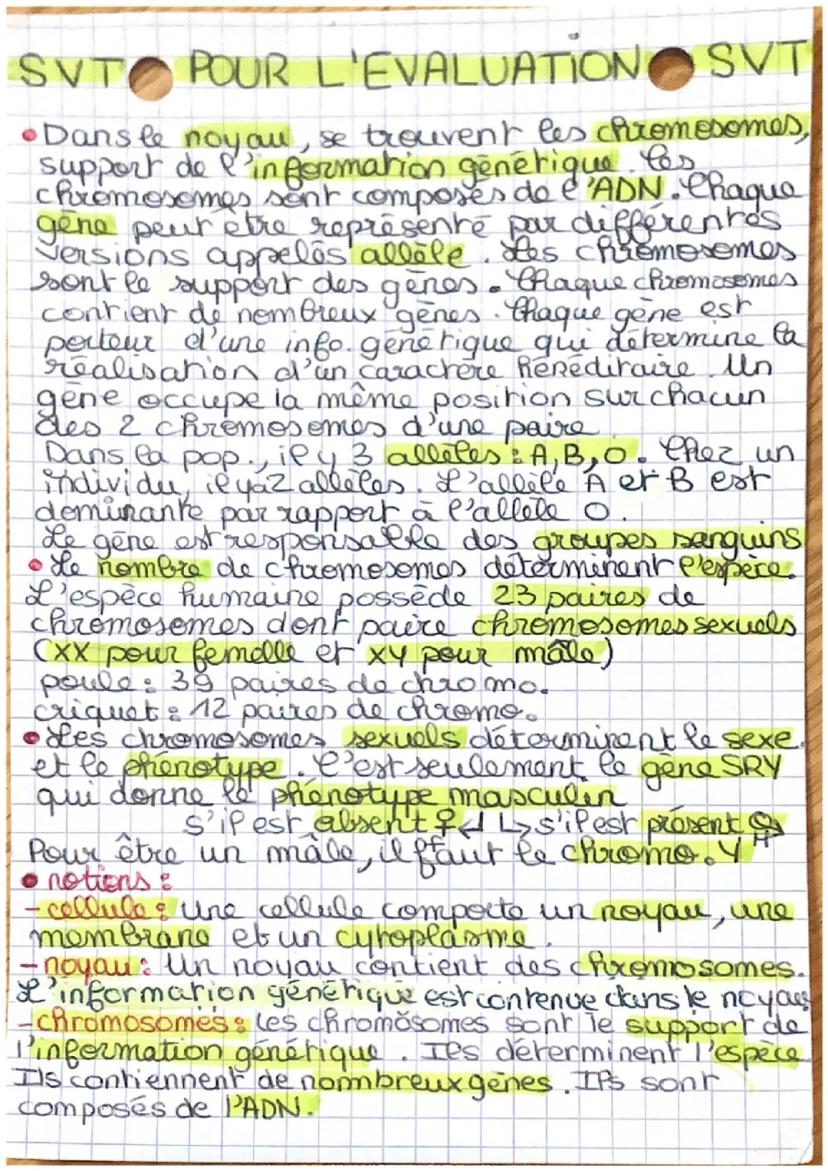 SVT POUR L'EVALUATION SVT
• Dans le noyau, se trouvent les chromosomes,
support de l'information génétique. Les
chromosomes sont composés de l'ADN. Chaque
gène peut être représenté par différentes
versions appelés allèle. Les chromosomes
sont le support des gènes. Chaque chromosomes
contient de nombreux gènes. Chaque gène est
porteur d'une info. génétique qui détermine la
réalisation d'un caractère héréditaire. Un
gène occupe la même position sur chacun
des 2 chromosomes d'une paire
Dans la pop., il y 3 allèles : A, B, O. Chez un
individu, il y a 2 allèles. L'allèle A et B est
dominante par rapport à l'allèle O.
Le gène est responsable des groupes sanguins
• Le nombre de chromosomes déterminent l'espèce.
L'espèce humaine possède 23 paires de
chromosomes dont paire chromosomes sexuels
(XX pour femelle et XY pour mâle)
poule : 39 paires de chromo.
criquet : 12 paires de chromo.
• Les chromosomes sexuels déterminent le sexe
et le phénotype. C'est seulement le gène SRY
qui donne le phénotype masculin
s'il est absent ♀ ↲ ↳ s'il est présent ♂
Pour être un mâle, il faut le chromo. Y
• notions :
- cellule : Une cellule comporte un noyau, une
membrane et un cytoplasme.
- noyau : Un noyau contient des chromosomes.
L'information génétique est contenue dans le noyau
- chromosomes : Les chromosomes sont le support de
l'information génétique. Ils déterminent l'espèce
Ils contiennent de nombreux gènes. Ils sont
composés de l'ADN.